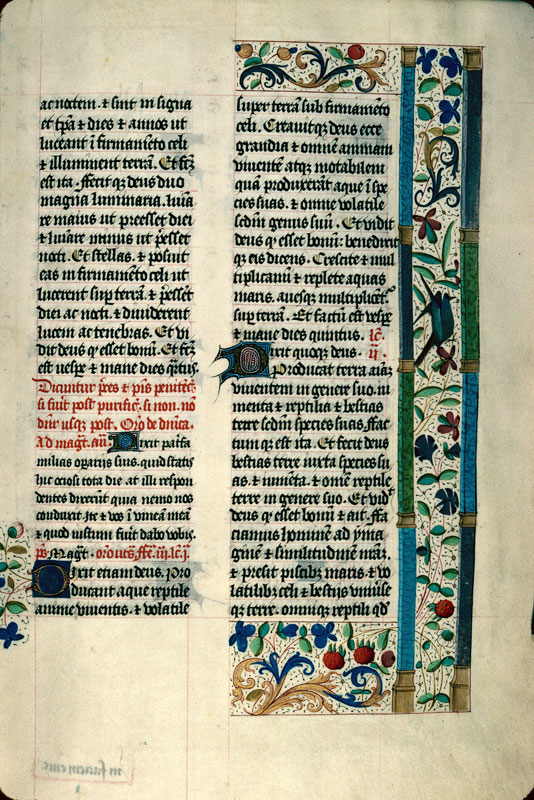 ac noctem. ⁊ sint in signa
et tp̄a ⁊ dies ⁊ annos ut
luceant ī firmamēto celi
⁊ illuminent terrā. Et fc̄m
est ita. ffecit qȝ deus duo
magna luminaria. lumīa
re maius ut preesset diei
⁊ lumīare minus ut p̄esset
nocti. Et stellas. ⁊ posuit
eas in firmamēto celi ut
lucerent sup̄ terrā. ⁊ p̄esset
diei ac nocti. ⁊ diuiderent
lucem ac tenebras. Et vi
dit deus qȝ esset bonū. Et fc̄m
est uesp̄e ⁊ mane dies q̄rtus.
Dicuntur p̄ces ⁊ p̄s penitēc̄.
si fuīt post purific̄. si non. nō
dn̄r usqȝ post. Or̄o de dn̄ica.
Ad magn̄t. an̄. Dixit paterfa
milias operarijs suis. quid statis
hic ociosi tota die. at illi respon
dentes dixerūt quia nemo nos
conduxit. ite ⁊ vos ī vineam meā
⁊ quod iustum fuīt dabo vobis.
p̄s Magn̄t. or̄o ut s̄. ff̄e. iii. lc̄. i.
Dixit etiam deus. Pro
ducant aque reptile
anime viuentis. ⁊ volatile
super terrā sub firmamēto
celi. Creauitqȝ deus cete
grandia ⁊ omnē animam
viuentē atqȝ motabilem
quā produxerāt aque ī spe
cies suas. ⁊ omne volatile
sedm̄ genus suū. Et vidit
deus qȝ esset bonū: benedixit
qȝ eis dicens. Crescite ⁊ mul
tiplicamī ⁊ replete aquas
maris. auesqȝ multiplicēt̄
sup̄ terrā. Et factū est uesp̄e
⁊ mane dies quintus. lc̄.
Dixit quoqȝ deus. ii.
Producat terra aīaȝ
viuentem in genere suo. iu
menta ⁊ reptilia ⁊ bestias
terre sedm̄ species suas. ffac
tum qȝ est ita. Et fecit deus
bestias terre iuxta species su
as. ⁊ iumēta. ⁊ omne reptile
terre in genere suo. Et vid̄
deus qȝ esset bonū ⁊ ait. ffa
ciamus hominē ad yma
ginē ⁊ similitudinē nr̄aȝ.
⁊ presit piscibȝ maris. ⁊ vo
latilibȝ celi ⁊ bestijs vniuse
qȝ terre. omniqȝ reptili qd̄